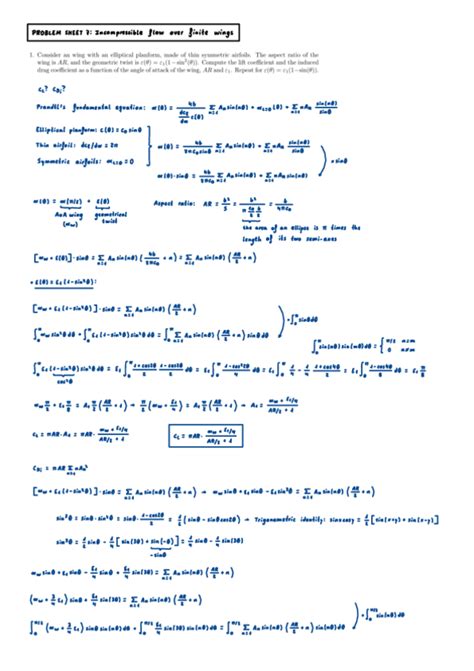 PROBLEM SHEET 7: Incompressible flow over finite wings
1. Consider an wing with an elliptical planform, made of thin symmetric airfoils. The aspect ratio of the
wing is AR, and the geometric twist is ε(θ) = ε₁(1−sin²(θ)). Compute the lift coefficient and the induced
drag coefficient as a function of the angle of attack of the wing, AR and ε₁. Repeat for ε(θ) = ε₁(1−sin(θ)).
C_L? C_Di?
Prandtl's fundamental equation: α(θ) = 4b / (dcℓ/dα c(θ)) Σ n≥1 An sin(nθ) + α_L=0(θ) + Σ n≥1 nAn sin(nθ)/sinθ
Elliptical planform: c(θ) = c₀ sinθ
Thin airfoil: dcℓ/dα = 2π
α(θ) = 4b/(2πc₀ sinθ) Σ n≥1 An sin(nθ) + Σ n≥1 nAn sin(nθ)/sinθ
· sinθ
Symmetric airfoils: α_L=0 = 0
α(θ)·sinθ = 4b/(2πc₀) Σ n≥1 An sin(nθ) + Σ n≥1 nAn sin(nθ)
α(θ) = α(π/2) + ε(θ)
AoA wing (αw) geometrical twist
Aspect ratio: AR = b²/S = b²/(π c₀/2 b/2) = 4b/(πc₀)
the area of an ellipse is π times the
length of its two semi-axes
[αw + ε(θ)]·sinθ = Σ n≥1 An sin(nθ) (4b/(2πc₀) + n) = Σ n≥1 An sin(nθ) (AR/2 + n)
• ε(θ) = ε₁(1−sin²θ):
[αw + ε₁(1−sin²θ)]·sinθ = Σ n≥1 An sin(nθ) (AR/2 + n)
·∫₀^π sinθdθ
∫₀^π αw sin²θ dθ + ∫₀^π ε₁(1−sin²θ) sin²θ dθ = ∫₀^π Σ n≥1 An sin(nθ) (AR/2 + n) sinθ dθ
∫₀^π sin(nθ) sin(mθ) dθ = { π/2 n=m
0 n≠m
∫₀^π ε₁(1−sin²θ) sin²θ dθ = ε₁∫₀^π (1+cos2θ)/2 (1−cos2θ)/2 dθ = ε₁∫₀^π (1−cos²2θ)/4 dθ = ε₁∫₀^π 1/4 − (1+cos4θ)/8 dθ = ε₁∫₀^π 1/8 dθ = ε₁ π/8
cos²θ
αw π/2 + ε₁ π/8 = A₁ π/2 (AR/2 + 1) → π/2 (αw + ε₁/4) = A₁ π/2 (AR/2 + 1) → A₁ = (αw + ε₁/4)/(AR/2 + 1)
C_L = πAR·A₁ = πAR· (αw + ε₁/4)/(AR/2 + 1)
C_L = πAR· (αw + ε₁/4)/(AR/2 + 1)
C_Di = πAR Σ n≥1 nAn²
[αw + ε₁(1−sin²θ)]·sinθ = Σ n≥1 An sin(nθ) (AR/2 + n) → αw sinθ + ε₁ sinθ − ε₁ sin³θ = Σ n≥1 An sin(nθ) (AR/2 + n)
sin³θ = sinθ·sin²θ = sinθ· (1−cos2θ)/2 = 1/2 (sinθ − sinθcos2θ) → Trigonometric identity: sinxcosy = 1/2 [sin(x+y) + sin(x−y)]
sin³θ = 1/2 sinθ − 1/4 [sin(3θ) + sin(−θ)] = 3/4 sinθ − 1/4 sin(3θ)
−sinθ
αw sinθ + ε₁ sinθ − ε₁ 3/4 sinθ + ε₁/4 sin(3θ) = Σ n≥1 An sin(nθ) (AR/2 + n)